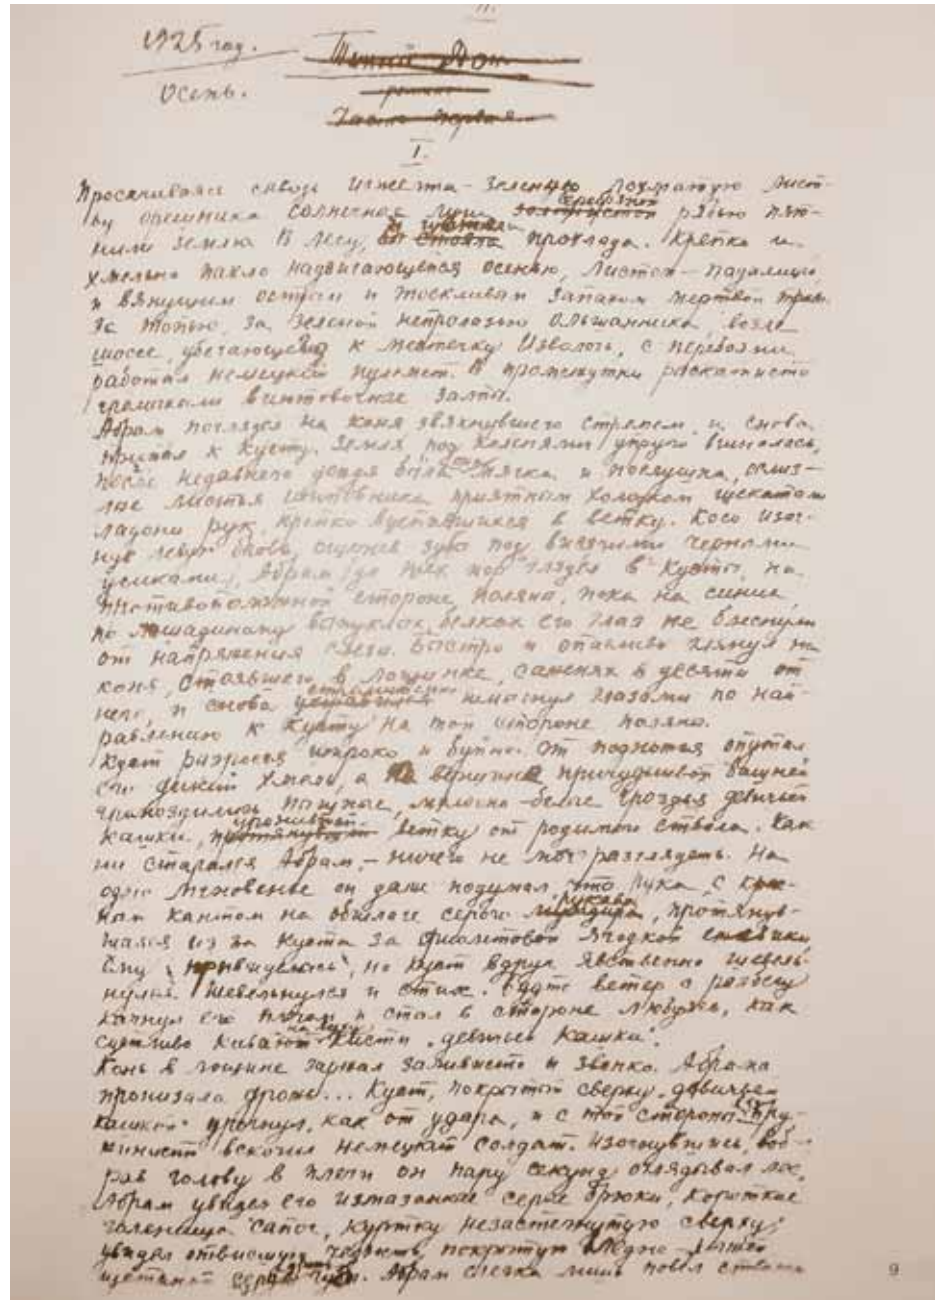 1925 год.
Осень.
Тихий Дон
роман
Часть первая
I.
Просачиваясь сквозь изжелта-зеленую лохматую лист-
ву орешника солнечные лучи золотистой серебряной рябью пят-
нили землю. В лесу, стояла прохлада. Крепко и
хмельно пахло надвигающейся осенью, листом-падалицей
и вянущим острым и тоскливым запахом мертвой травы.
За топью, за зеленой непролазью ольшанника, возле
шоссе, убегающего к местечку Изволочь, с перебоями
работал немецкий пулемет. В промежутки раскатисто
громыхали винтовочные залпы.
Абрам погляделся на коня звякнувшего стременем и снова
припал к кусту. Земля под коленями упруго вминалась,
после недавнего дождя была мягка и послушна, осклиз-
лые листья шиповника приятным холодком щекотали
ладони рук, крепко вцепившихся в ветку. Косо изог-
нув левую бровь, ощерив зубы под висячими черными
усиками, Абрам до тех пор глядел в кусты, на
противоположной стороне поляны, пока на синих,
по лошадиному выпуклых белках его глаз не блеснули
от напряжения слезы. Быстро и опасливо глянул на
коня, стоявшего в лощинке, саженях в десяти от
него, и снова уставился шмыгнул глазами по нап-
равлению к кусту на той стороне поляны.
Куст разросся широко и буйно. От подножья опутал
его дикий хмель, а на вершине причудливой башней
громоздились пышные, молочно-белые гроздья девичьей
кашки, ветку от родимого ствола. Как
ни старался Абрам, - ничего не мог разглядеть. На
одно мгновенье он даже подумал, что рука, с крас-
ным кантом на обшлаге серого рукава мундира, протянув-
шаяся из за куста за фиолетовой ягодкой ежевики
ему привиделась, но куст вдруг явственно шевель-
нулся. Шевельнулся и стих. Будто ветер с разбегу
качнул его и стал в стороне любуясь, как
суетливо кивают кисти девичьей кашки.
Конь в лощине заржал заливисто и звонко. Абрама
пронизала дрожь... Куст, покрытый сверху девичьей
кашкой дрогнул, как от удара, и с той стороны пру-
жинисто вскочил немецкий солдат. Изогнувшись, воб-
рав голову в плечи он пару секунд оглядывал лес,
Абрам увидел его измазанные серые брюки, короткие
голенища сапог, куртку незастегнутую сверху;
увидел отвисшую челюсть, покрытую бледно-желтой
щетиной губы. Абрам слегка лишь повел стволом
9